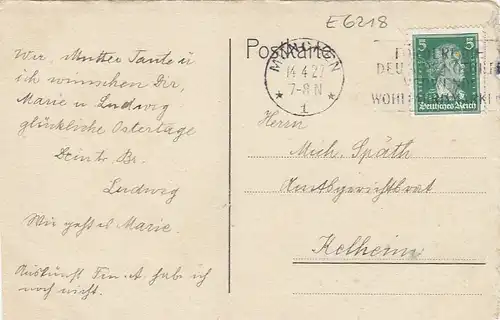 E6218
Postkarte
MÜNCHEN
14.4.27
7-8 N
1
5 5
Deutsches Reich
DEU
WOHL
Wir, Mutter Tante u
ich wünschen Dir,
Marie u Ludwig
glückliche Ostertage
Dein Br.
Ludwig
Wie geht es Marie.
Auskunft hab ich
noch nicht.
Herrn
Mich. Späth
Amtsgerichtsrat
Kelheim